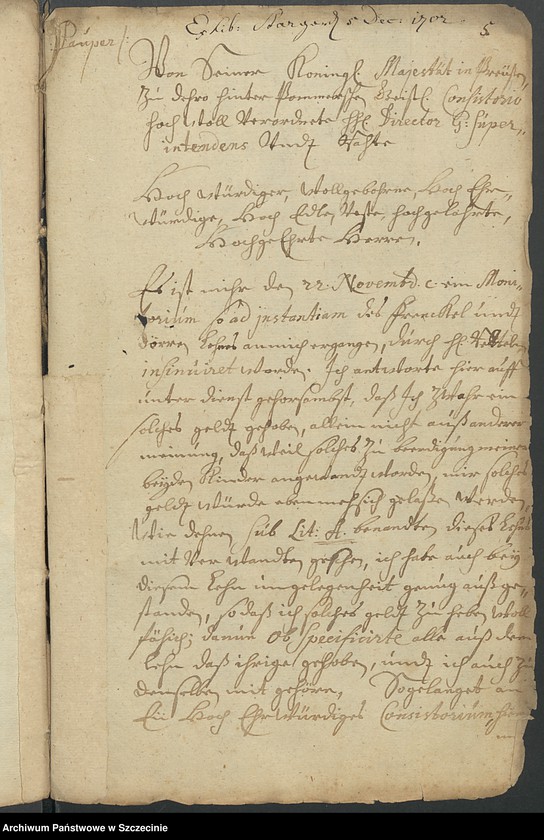 Exhib: Stargard 5 Dec: 1702
5
Pauper /:
Von Seiner Königl. Majestät in Preußen
Zu dehro hinter Pommersche Geistl. Consistorio
hoch woll Verordnete HH. Director G: Super-
intendens Undt Rähte
Hoch würdiger, Wollgebohrne, Hoch Ehr-
würdige, Hoch Edle, Veste, hochgelahrte,
HochgeEhrte Herren,
Es ist mihr den 22. Novembr. c. ein Moni-
torium so ad instantiam des Frenckel undt
Lehns an mich ergangen, durch H.
insinuiret worden. Ich antworte hier auff
unter dienst gehorsambst, daß Ich Zwahr ein
solches geldt gehoben, allein nicht auß anderer
meinung, daß weil solches Zu beerdigung meiner
beyden Kinder angewandt worden, mir solches
geldt würde ebenmeßich gelaßen werden,
Wie dehnen sub Lit: A. benandten dieses Lehns
mit Verwandten geschen, ich habe auch bey
diesem Lehn ungelegenheit genug auß ge-
standen, so daß ich solches geldt zu heben woll
fähich; dann Ob Specificirte alle auß dem
Lehn daß ihrige gehoben, undt ich auch Zu
denselben mit gehöre, Sogelanget an
Ein Hoch Ehrwürdiges Consistorium hie
Archiwum Państwowe w Szczecinie